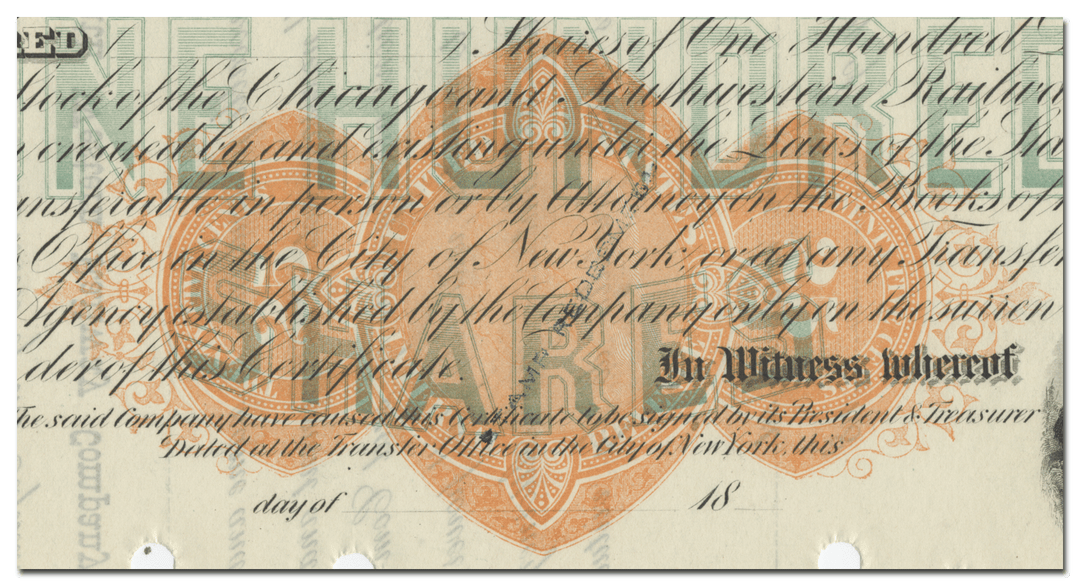 RED
Shares of One Hundred
Stock of the Chicago and Southwestern Railwa
created by and existing under the Laws of the Sta
ansferable in person or by Attorney on the Books of
Office in the City of New York, or at any Transfer
Agency established by the Company only on the surren
der of this Certificate. In Witness whereof
The said Company have caused this Certificate to be signed by its President & Treasurer
Dated at the Transfer Office in the City of New York, this
day of 18
ONE HUNDRED
SHARES
Company